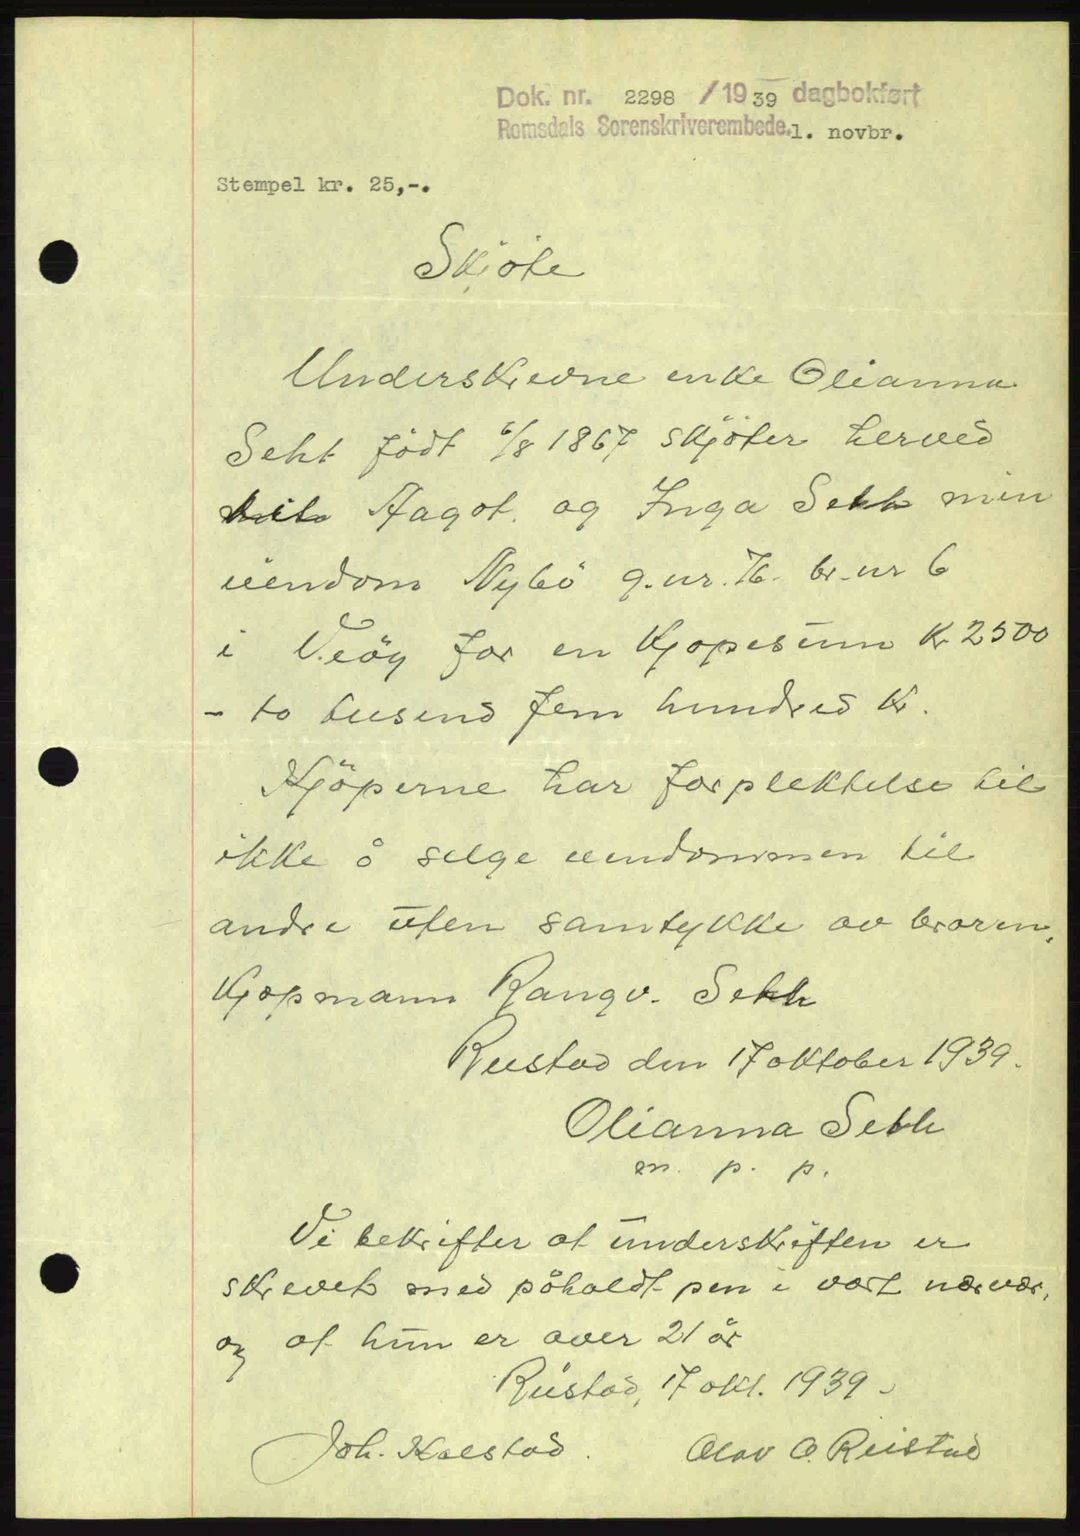 Dok. nr. 2298 / 19 39 dagbokført
Romsdals Sorenskriverembede. 1. novbr.
Stempel kr. 25,-.
Skjöte
Underskrevne enke Olianna
Seht födt 6/8 1867 skjöter herved
Aagot. og Inga Sehh min
eiendom Nybö g.nr. 76. br.nr 6
i Veöy for en Kjöpesum Kr 2500
- to tusend fem hundred Kr.
Kjöperne har forplektelse til
ikke å selge eiendommen til
andre uten samtykke av broren,
Kjöpmann Rangv. Sehh
Reistad den 17 oktober 1939.
Olianna Sehh
m. p. p.
Vi bekrifter at underskriften er
skrevet med påholdt pen i vort nærvær,
og at hun er over 21 år
Reistad, 17 okt. 1939.
Joh. Kolstad. Olav O. Reistad